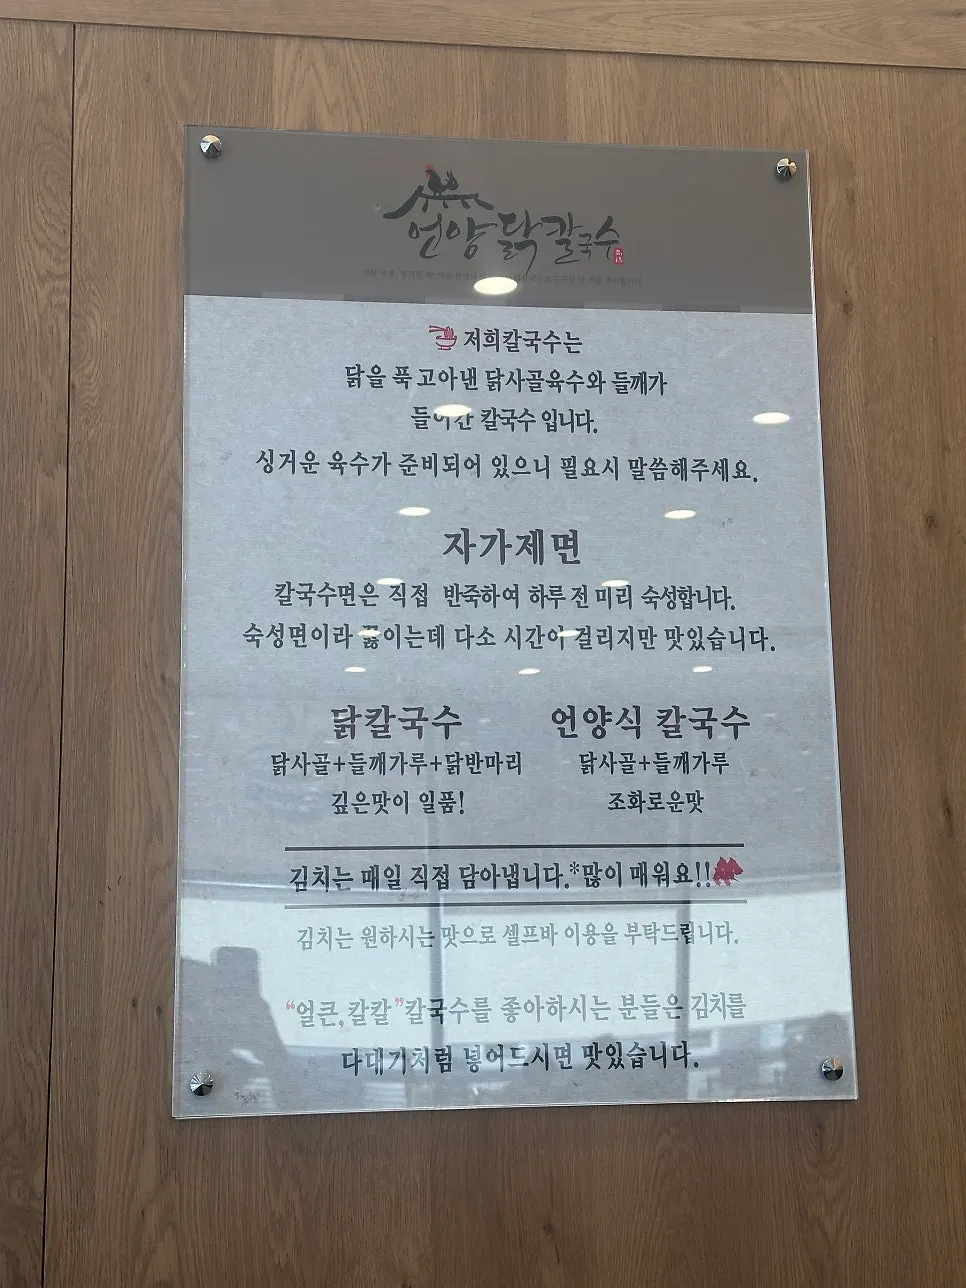 언양닭칼국수
저희칼국수는
닭을 푹 고아낸 닭사골육수와 들깨가
들어간 칼국수 입니다.
싱거운 육수가 준비되어 있으니 필요시 말씀해주세요.
자가제면
칼국수면은 직접 반죽하여 하루 전 미리 숙성합니다.
숙성면이라 끓이는데 다소 시간이 걸리지만 맛있습니다.
닭칼국수 언양식 칼국수
닭사골+들깨가루+닭반마리 닭사골+들깨가루
깊은맛이 일품! 조화로운맛
김치는 매일 직접 담아냅니다.*많이 매워요!!
김치는 원하시는 맛으로 셀프바 이용을 부탁드립니다.
"얼큰, 칼칼"칼국수를 좋아하시는 분들은 김치를
다대기처럼 넣어드시면 맛있습니다.